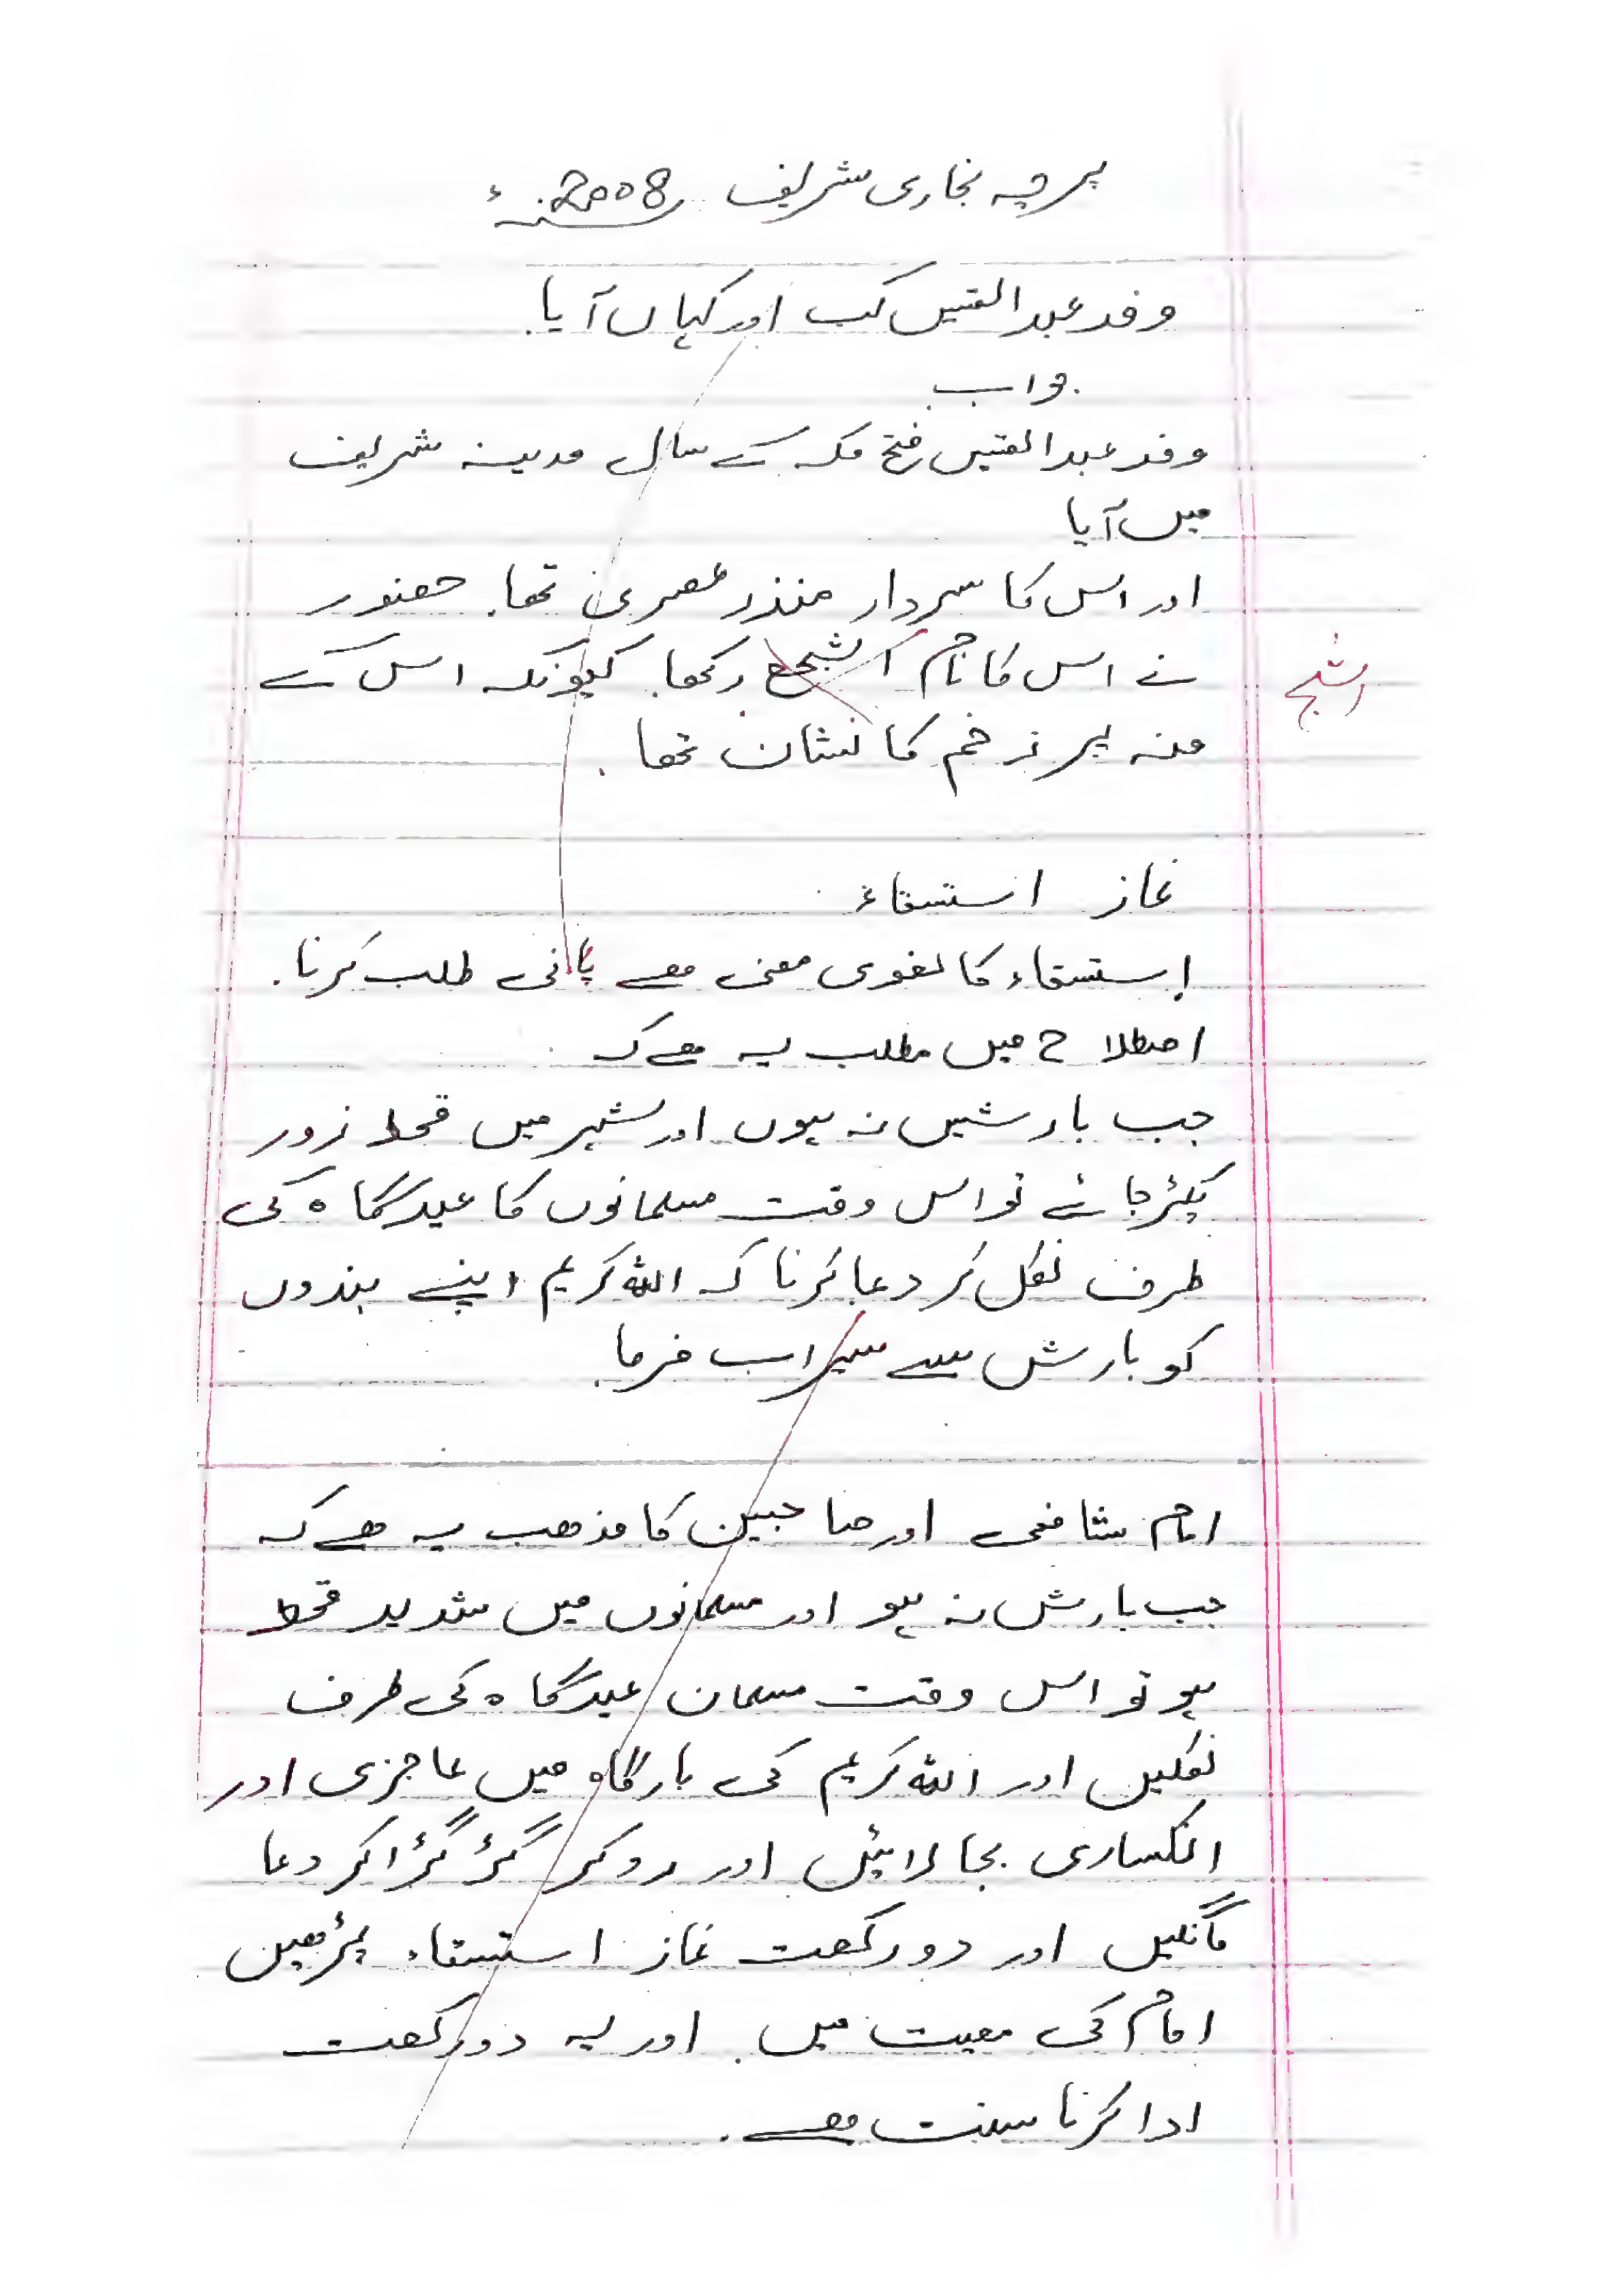 پرچہ بخاری شریف سنہ 2008ء
وفد عبدالقیس کب اور کہاں آیا.
جواب
وفد عبدالقیس فتح مکہ کے سال مدینہ شریف
میں آیا
اور اس کا سردار منذر عصری تھا. حضور
نے اس کا نام اشجع رکھا. کیونکہ اس کے
اشج
منہ پر زخم کا نشان تھا.
نماز استسقاء
إستسقاء کا لغوی معنی ھے پانی طلب کرنا.
اصطلاح میں مطلب یہ ھے کہ
جب بارشیں نہ ہوں اور شہر میں قحط زور
پکڑ جائے تو اس وقت مسلمانوں کا عیدگاہ کی
طرف نکل کر دعا کرنا کہ اللہ کریم اپنے بندوں
کو بارش سے سیراب فرما.
امام شافعی اور صاحبین کا مذھب یہ ھے کہ
جب بارش نہ ہو اور مسلمانوں میں شدید قحط
ہو تو اس وقت مسلمان عیدگاہ کی طرف
نکلیں اور اللہ کریم کی بارگاہ میں عاجزی اور
انکساری بجا لائیں اور روکر گڑ گڑا کر دعا
مانگیں اور دو رکعت نماز استسقاء پڑھیں
امام کی معیت میں. اور یہ دو رکعت
ادا کرنا سنت ھے.